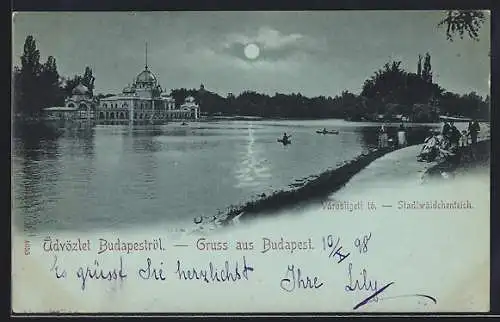 Városligeti tó. — Stadtwäldchenteich.
Üdvözlet Budapestről. — Gruss aus Budapest. 10/X 98
Es grüsst Sie herzlichst Ihre Lily